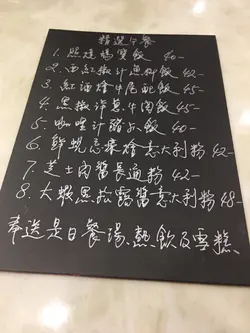 精選午餐
1. 照燒鴨寶飯 40-
2. 西紅柿汁魚柳飯 42-
3. 紅酒燴牛尾配飯 45-
4. 黑椒洋葱牛肉飯 45-
5. 咖喱汁豬扒飯 40-
6. 鮮蜆忌廉燴意大利粉 42-
7. 芝士肉醬長通粉 42-
8. 大蝦黑松露醬意大利粉 48-
奉送是日餐湯、熱飲及雪糕